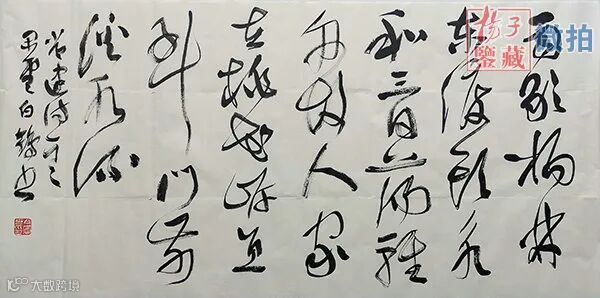 雨歇楊林
东渡头永
和三日荡轻
舟故人家
在桃花岸直
到门前
溪水流
常建诗
白鶴书
揚子
鑒藏
微拍
大数跨境